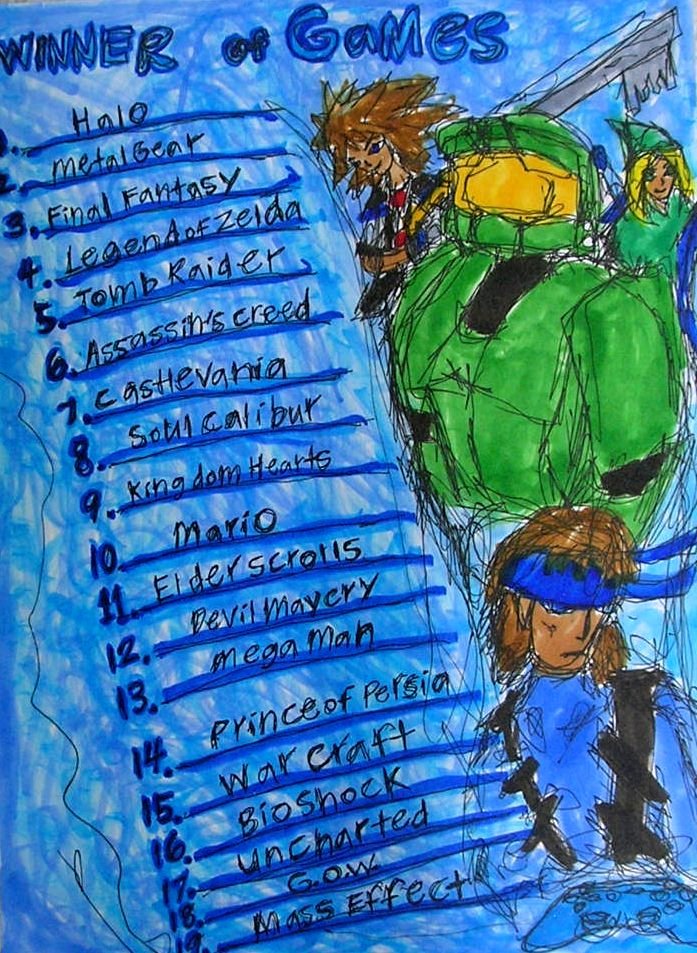 WINNER of GAMES
1. Halo
2. Metal Gear
3. Final Fantasy
4. Legend of Zelda
5. Tomb Raider
6. Assassin's creed
7. Castlevania
8. Soul Calibur
9. Kingdom Hearts
10. Mario
11. Elder scrolls
12. Devil May cry
13. mega man
14. Prince of Persia
15. War craft
16. Bioshock
17. uncharted
18. G.O.W.
19. Mass Effect